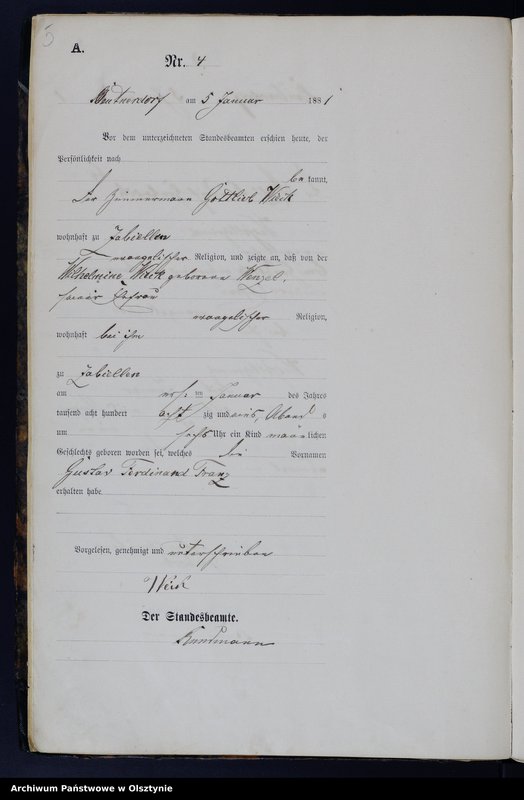 5
A.
Nr. 4
am 5 Januar 1881
Vor dem unterzeichneten Standesbeamten erschien heute, der
Persönlichkeit nach
be kannt,
der Zimmermann Gottlieb
wohnhaft zu Zabiellen
evangelischer Religion, und zeigte an, daß von der
Wilhelmine geborene Wenzel,
seiner Ehefrau
evangelischer Religion,
wohnhaft bei ihm
zu Zabiellen
am im Januar des Jahres
tausend acht hundert acht zig und eins, Abend s
um sechs Uhr ein Kind männ lichen
Geschlechts geboren worden sei, welches die Vornamen
Gustav Ferdinand Franz
erhalten habe.
Vorgelesen, genehmigt und unterschrieben
Der Standesbeamte.
Archiwum Państwowe w Olsztynie